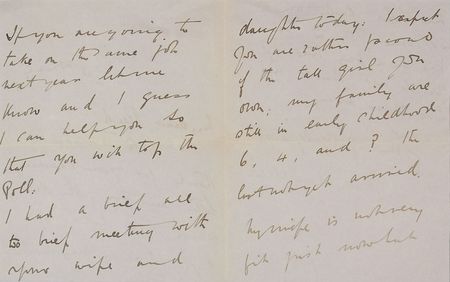 If you are going to
take on the same job
next year let me
know and I guess
I can help you so
that you will top the
Poll.
I had a brief all
too brief meeting with
your wife and
daughter today: I expect
you are rather proud
of the tall girl you
own; my family are
still in early childhood
6, 4, and ? the
last not yet arrived.
My wife is not very
fit just now but